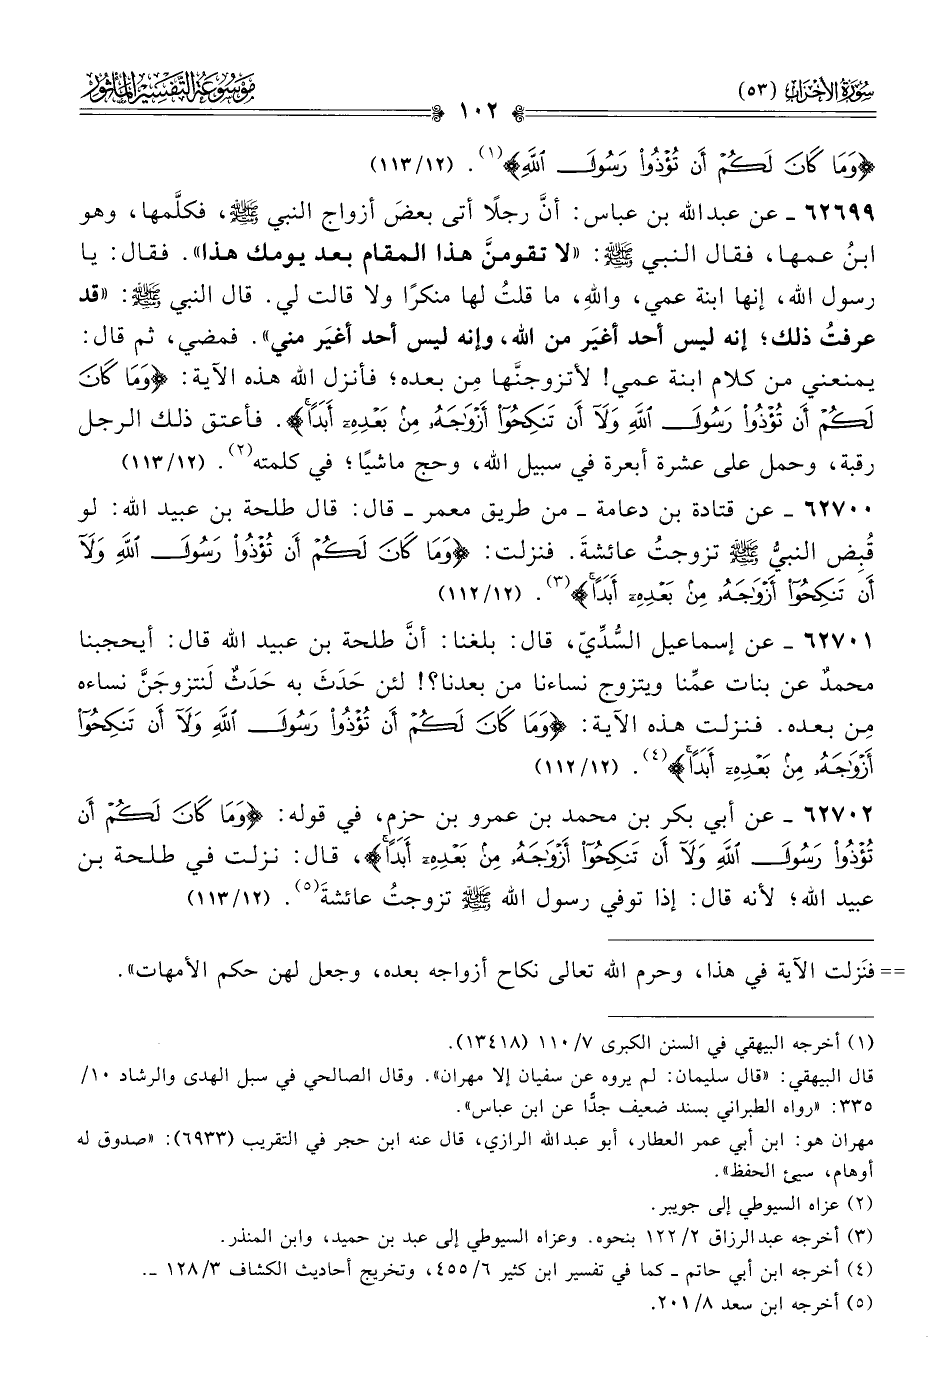 سُورَةُ الأَحْزَابِ (٥٣)
مَوْسُوعَة التَّفْسِيرِ المَأْثُور
١٠٢
﴿وَمَا كَانَ لَكُمْ أَن تُؤْذُوا۟ رَسُولَ ٱللَّهِ﴾(١). (١١٣/١٢)
٦٢٦٩٩ ـ عن عبدالله بن عباس: أنَّ رجلًا أتى بعضَ أزواج النبي ﷺ، فكلَّمها، وهو
ابنُ عمها، فقال النبي ﷺ: «لا تقومنَّ هذا المقام بعد يومك هذا». فقال: يا
رسول الله، إنها ابنة عمي، واللهِ، ما قلتُ لها منكرًا ولا قالت لي. قال النبي ﷺ: «قد
عرفتُ ذلك؛ إنه ليس أحد أغيَر من الله، وإنه ليس أحد أغيَر مني». فمضي، ثم قال:
يمنعني من كلام ابنة عمي! لأتزوجنَّها مِن بعده؛ فأنزل الله هذه الآية: ﴿وَمَا كَانَ
لَكُمْ أَن تُؤْذُوا۟ رَسُولَ ٱللَّهِ وَلَآ أَن تَنكِحُوٓا۟ أَزْوَٰجَهُۥ مِنۢ بَعْدِهِۦٓ أَبَدًا﴾. فأعتق ذلك الرجل
رقبة، وحمل على عشرة أبعرة في سبيل الله، وحج ماشيًا؛ في كلمته(٢). (١١٣/١٢)
٦٢٧٠٠ ـ عن قتادة بن دعامة ـ من طريق معمر ـ قال: قال طلحة بن عبيد الله: لو
قُبِض النبيُّ ﷺ تزوجتُ عائشةَ. فنزلت: ﴿وَمَا كَانَ لَكُمْ أَن تُؤْذُوا۟ رَسُولَ ٱللَّهِ وَلَآ
أَن تَنكِحُوٓا۟ أَزْوَٰجَهُۥ مِنۢ بَعْدِهِۦٓ أَبَدًا﴾(٣). (١١٢/١٢)
٦٢٧٠١ ـ عن إسماعيل السُّدِّيّ، قال: بلغنا: أنَّ طلحة بن عبيد الله قال: أيحجبنا
محمدٌ عن بنات عمِّنا ويتزوج نساءنا من بعدنا؟! لئن حَدَثَ به حَدَثٌ لَنتزوجَنَّ نساءه
مِن بعده. فنزلت هذه الآية: ﴿وَمَا كَانَ لَكُمْ أَن تُؤْذُوا۟ رَسُولَ ٱللَّهِ وَلَآ أَن تَنكِحُوٓا۟
أَزْوَٰجَهُۥ مِنۢ بَعْدِهِۦٓ أَبَدًا﴾(٤). (١١٢/١٢)
٦٢٧٠٢ ـ عن أبي بكر بن محمد بن عمرو بن حزم، في قوله: ﴿وَمَا كَانَ لَكُمْ أَن
تُؤْذُوا۟ رَسُولَ ٱللَّهِ وَلَآ أَن تَنكِحُوٓا۟ أَزْوَٰجَهُۥ مِنۢ بَعْدِهِۦٓ أَبَدًا﴾، قال: نزلت في طلحة بن
عبيد الله؛ لأنه قال: إذا توفي رسول الله ﷺ تزوجتُ عائشةَ(٥). (١١٣/١٢)
== فنَزلت الآية في هذا، وحرم الله تعالى نكاح أزواجه بعده، وجعل لهن حكم الأمهات».
(١) أخرجه البيهقي في السنن الكبرى ٧/ ١١٠ (١٣٤١٨).
قال البيهقي: «قال سليمان: لم يروه عن سفيان إلا مهران». وقال الصالحي في سبل الهدى والرشاد ١٠/
٣٣٥: «رواه الطبراني بسند ضعيف جدًّا عن ابن عباس».
مهران هو: ابن أبي عمر العطار، أبو عبدالله الرازي، قال عنه ابن حجر في التقريب (٦٩٣٣): «صدوق له
أوهام، سيئ الحفظ».
(٢) عزاه السيوطي إلى جويبر.
(٣) أخرجه عبدالرزاق ٢/ ١٢٢ بنحوه. وعزاه السيوطي إلى عبد بن حميد، وابن المنذر.
(٤) أخرجه ابن أبي حاتم ـ كما في تفسير ابن كثير ٦/ ٤٥٥، وتخريج أحاديث الكشاف ٣/ ١٢٨ ـ.
(٥) أخرجه ابن سعد ٨/ ٢٠١.